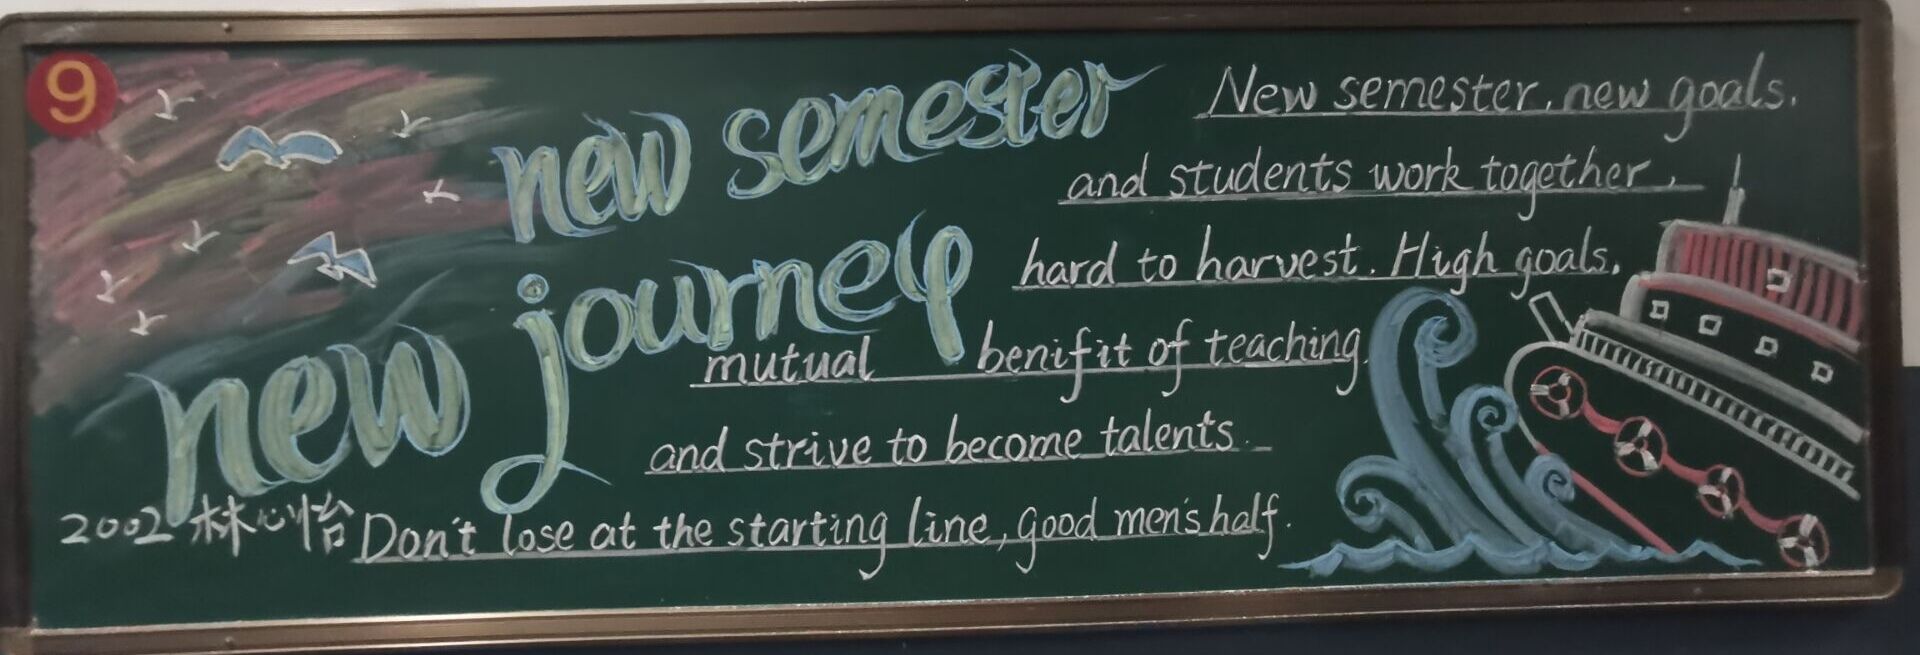 9
new semester
new journey
New semester, new goals.
and students work together,
hard to harvest. High goals,
mutual benifit of teaching,
and strive to become talents
2002 林心怡
Don't lose at the starting line, good men's half.